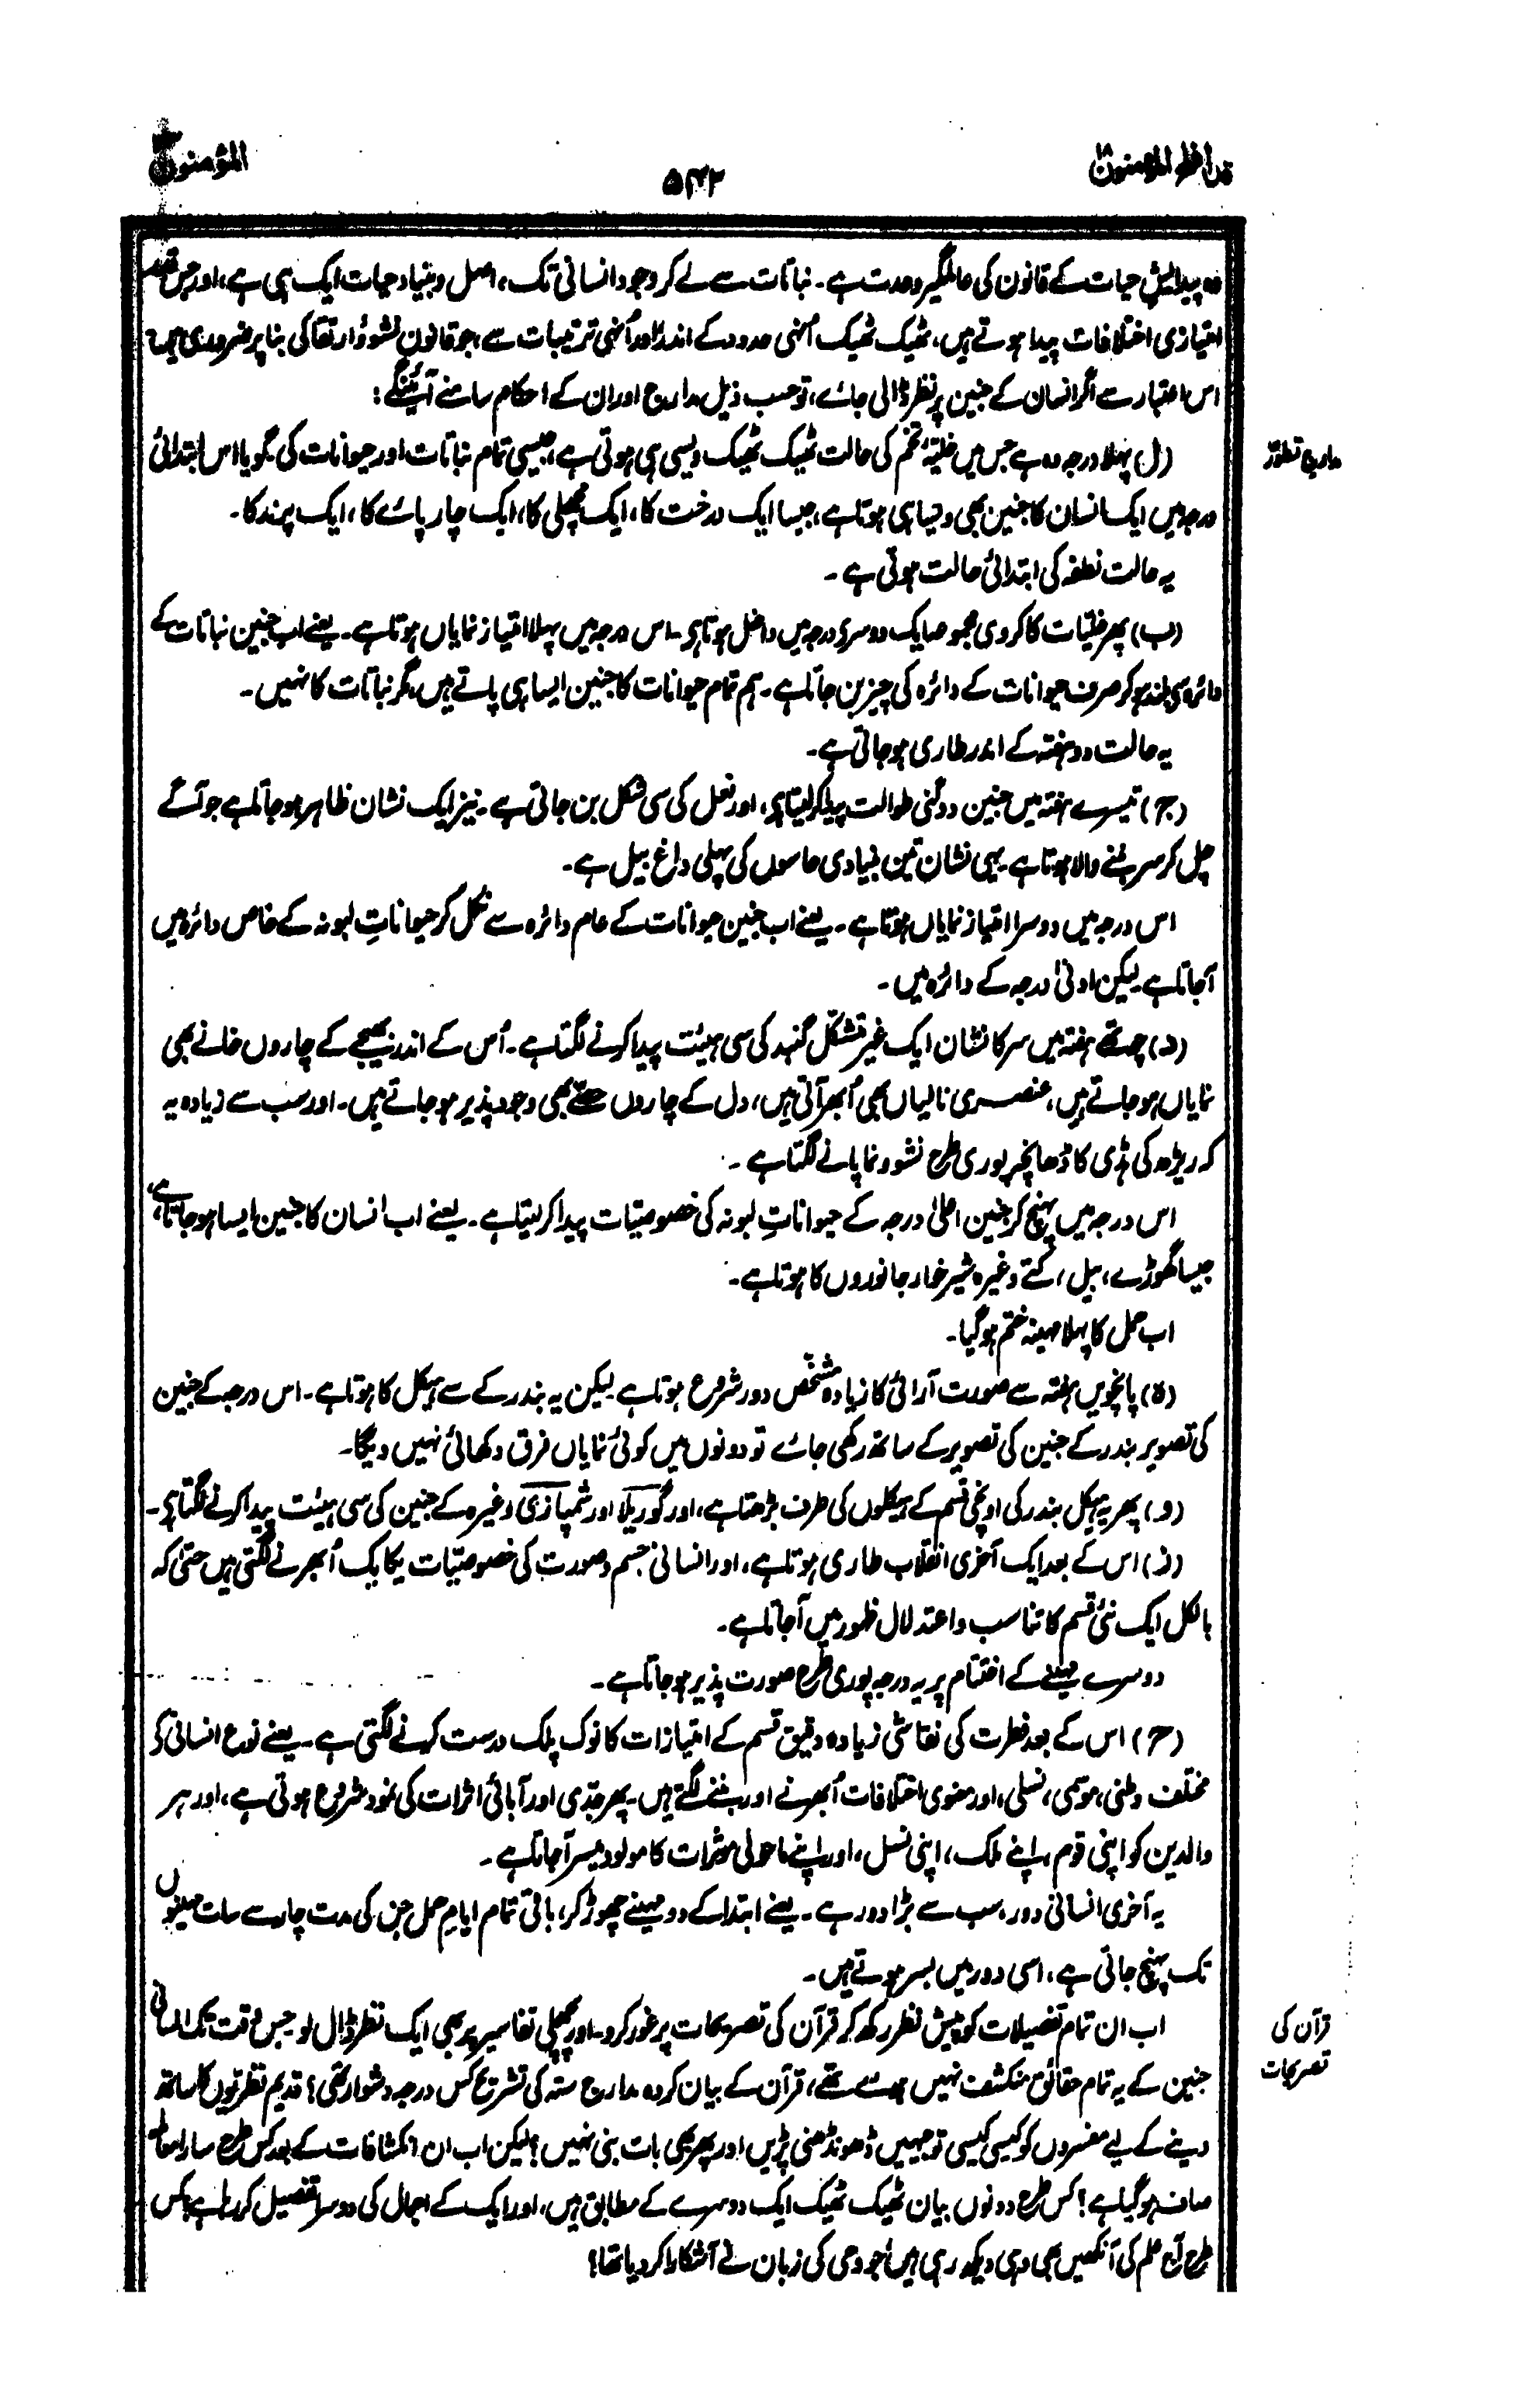 قد افلح المؤمنون ۱۸
۵۴۲
المؤمنون
وہ پیدایش حیات کے قانون کی عالمگیر وحدت ہے۔ نباتات سے لے کر وجود انسانی تک، اصل و بنیاد حیات ایک ہی ہے، اور جس قدر
امتیازی اختلافات پیدا ہوتے ہیں، ٹھیک ٹھیک اُنہی حدود کے اندر اور اُنہی ترتیبات سے، جو قانونِ نشوؤ ارتقا کی بنا پر ضروری ہیں۔
اس اعتبار سے اگر انسان کے جنین پر نظر ڈالی جائے، تو حسب ذیل مدارج اور ان کے احکام سامنے آئینگے:
مدارجِ تطوّر
(ا) پہلا درجہ وہ ہے جس میں خلیۂ تخم کی حالت ٹھیک ٹھیک ویسی ہی ہوتی ہے، جیسی تمام نباتات اور حیوانات کی۔ گویا اس ابتدائی
درجہ میں ایک انسان کا جنین بھی ویسا ہی ہوتا ہے، جیسا ایک درخت کا، ایک مچھلی کا، ایک چارپائے کا، ایک پرند کا۔
یہ حالت نطفہ کی ابتدائی حالت ہوتی ہے۔
(ب) پھر خلیّات کا کروی مجموعہ ایک دوسرے درجہ میں داخل ہوتا ہے۔ اس درجہ میں پہلا امتیاز نمایاں ہوتا ہے۔ یعنے اب جنین نباتات کے
دائرہ سے بلند ہو کر صرف حیوانات کے دائرہ کی چیز بن جاتا ہے۔ ہم تمام حیوانات کا جنین ایسا ہی پاتے ہیں، مگر نباتات کا نہیں۔
یہ حالت دو ہفتہ کے اندر طاری ہو جاتی ہے۔
(ج) تیسرے ہفتہ میں جنین دوگنی طوالت پیدا کر لیتا ہے، اور نعل کی سی شکل بن جاتی ہے۔ نیز ایک نشان ظاہر ہو جاتا ہے جو آگے
چل کر سر بننے والا ہوتا ہے۔ یہی نشان تین بنیادی حاسوں کی پہلی داغ بیل ہے۔
اس درجہ میں دوسرا امتیاز نمایاں ہوتا ہے۔ یعنے اب جنین حیوانات کے عام دائرہ سے نکل کر حیواناتِ لبونہ کے خاص دائرہ میں
آجاتا ہے لیکن ادنیٰ درجہ کے دائرہ میں۔
(د) چوتھے ہفتہ میں سر کا نشان ایک غیر متشکّل گنبد کی سی ہیئت پیدا کرنے لگتا ہے۔ اُس کے اندر بھیجے کے چاروں خانے بھی
نمایاں ہو جاتے ہیں، عنصری نالیاں بھی اُبھر آتی ہیں، دل کے چاروں حصّے بھی وجود پذیر ہو جاتے ہیں۔ اور سب سے زیادہ یہ
کہ ریڑھ کی ہڈی کا ڈھانچہ پوری طرح نشوونما پانے لگتا ہے۔
اس درجہ میں پہنچ کر جنین اعلیٰ درجہ کے حیواناتِ لبونہ کی خصوصیّات پیدا کر لیتا ہے۔ یعنے اب انسان کا جنین ایسا ہو جاتا ہے،
جیسا گھوڑے، بیل، کتے وغیرہ شیر خوار جانوروں کا ہوتا ہے۔
اب حمل کا پہلا مہینہ ختم ہو گیا۔
(ہ) پانچویں ہفتہ سے صورت آرائی کا زیادہ مشخّص دور شروع ہوتا ہے لیکن یہ بندر کے سے ہیکل کا ہوتا ہے۔ اس درجہ کے جنین
کی تصویر بندر کے جنین کی تصویر کے ساتھ رکھی جائے تو دونوں میں کوئی نمایاں فرق دکھائی نہیں دیگا۔
(و) پھر یہ ہیکل بندر کی اونچی قسم کے ہیکلوں کی طرف بڑھتا ہے، اور گوریلا اور شمپازی وغیرہ کے جنین کی سی ہیئت پیدا کرنے لگتا ہے۔
(ز) اس کے بعد ایک آخری انقلاب طاری ہوتا ہے، اور انسانی جسم و صورت کی خصوصیّات یکایک اُبھرنے لگتی ہیں حتیٰ کہ
بالکل ایک نئی قسم کا تناسب و اعتدال ظہور میں آجاتا ہے۔
دوسرے مہینے کے اختتام پر یہ درجہ پوری طرح صورت پذیر ہو جاتا ہے۔
(ح) اس کے بعد فطرت کی نقاشی زیادہ دقیق قسم کے امتیازات کا نوک پلک درست کرنے لگتی ہے۔ یعنے نوع انسانی کی
مختلف وطنی، موسمی، نسلی، اور معنوی اختلافات اُبھرنے اور بننے لگتے ہیں۔ پھر جدّی اور آبائی اثرات کی نمود شروع ہوتی ہے، اور ہر
والدین کو اپنی قوم، اپنے ملک، اپنی نسل، اور اپنے ماحولی موثرات کا مولود میسر آجاتا ہے۔
یہ آخری انسانی دور، سب سے بڑا دور ہے۔ یعنے ابتدا کے دو مہینے چھوڑ کر، باقی تمام ایامِ حمل جن کی مدت چار سے سات مہینوں
تک پہنچ جاتی ہے، اسی دور میں بسر ہوتے ہیں۔
قرآن کی
تصریحات
اب ان تمام تفصیلات کو پیش نظر رکھ کر قرآن کی تصریحات پر غور کرو۔ اور پچھلی تفاسیر پر بھی ایک نظر ڈال لو۔ جس وقت تک انسانی
جنین کے یہ تمام حقائق منکشف نہیں ہوئے تھے، قرآن کے بیان کردہ مدارج ستہ کی تشریح کس درجہ دشوار تھی؟ قدیم نظریوں کا ساتھ
دینے کے لیے مفسروں کو کیسی کیسی توجیہیں ڈھونڈھنی پڑیں اور پھر بھی بات بنی نہیں؟ لیکن اب ان انکشافات کے بعد کس طرح سارا معاملہ
صاف ہو گیا ہے؟ کس طرح دونوں بیان ٹھیک ٹھیک ایک دوسرے کے مطابق ہیں، اور ایک کے اجمال کی دوسرا تفصیل کر رہا ہے؟ کس
طرح آج علم کی آنکھیں بھی وہی دیکھ رہی ہیں جو وحی کی زبان نے آشکارا کر دیا تھا؟